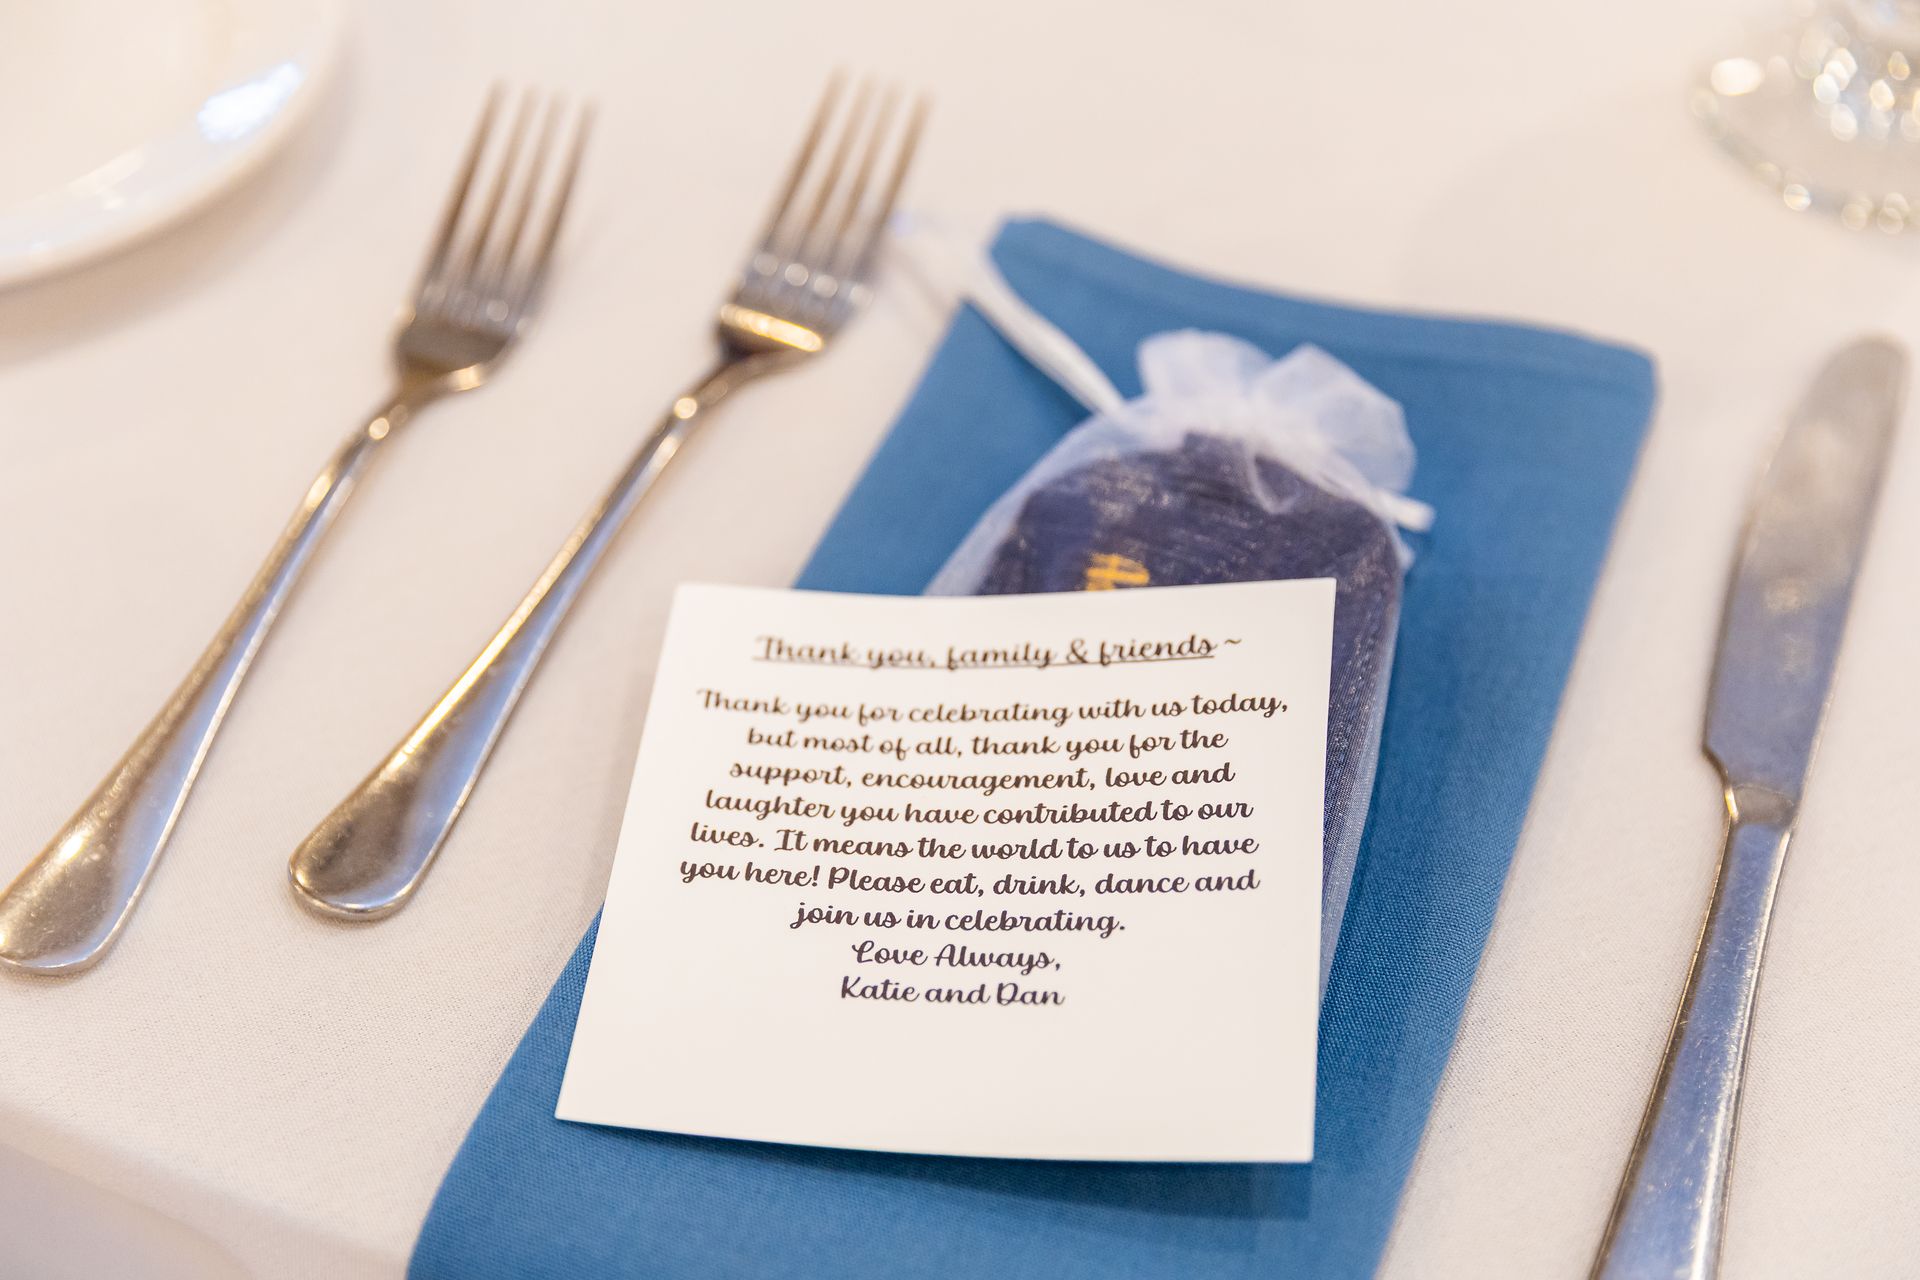 Thank you, family & friends ~
Thank you for celebrating with us today,
but most of all, thank you for the
support, encouragement, love and
laughter you have contributed to our
lives. It means the world to us to have
you here! Please eat, drink, dance and
join us in celebrating.
Love Always,
Katie and Dan